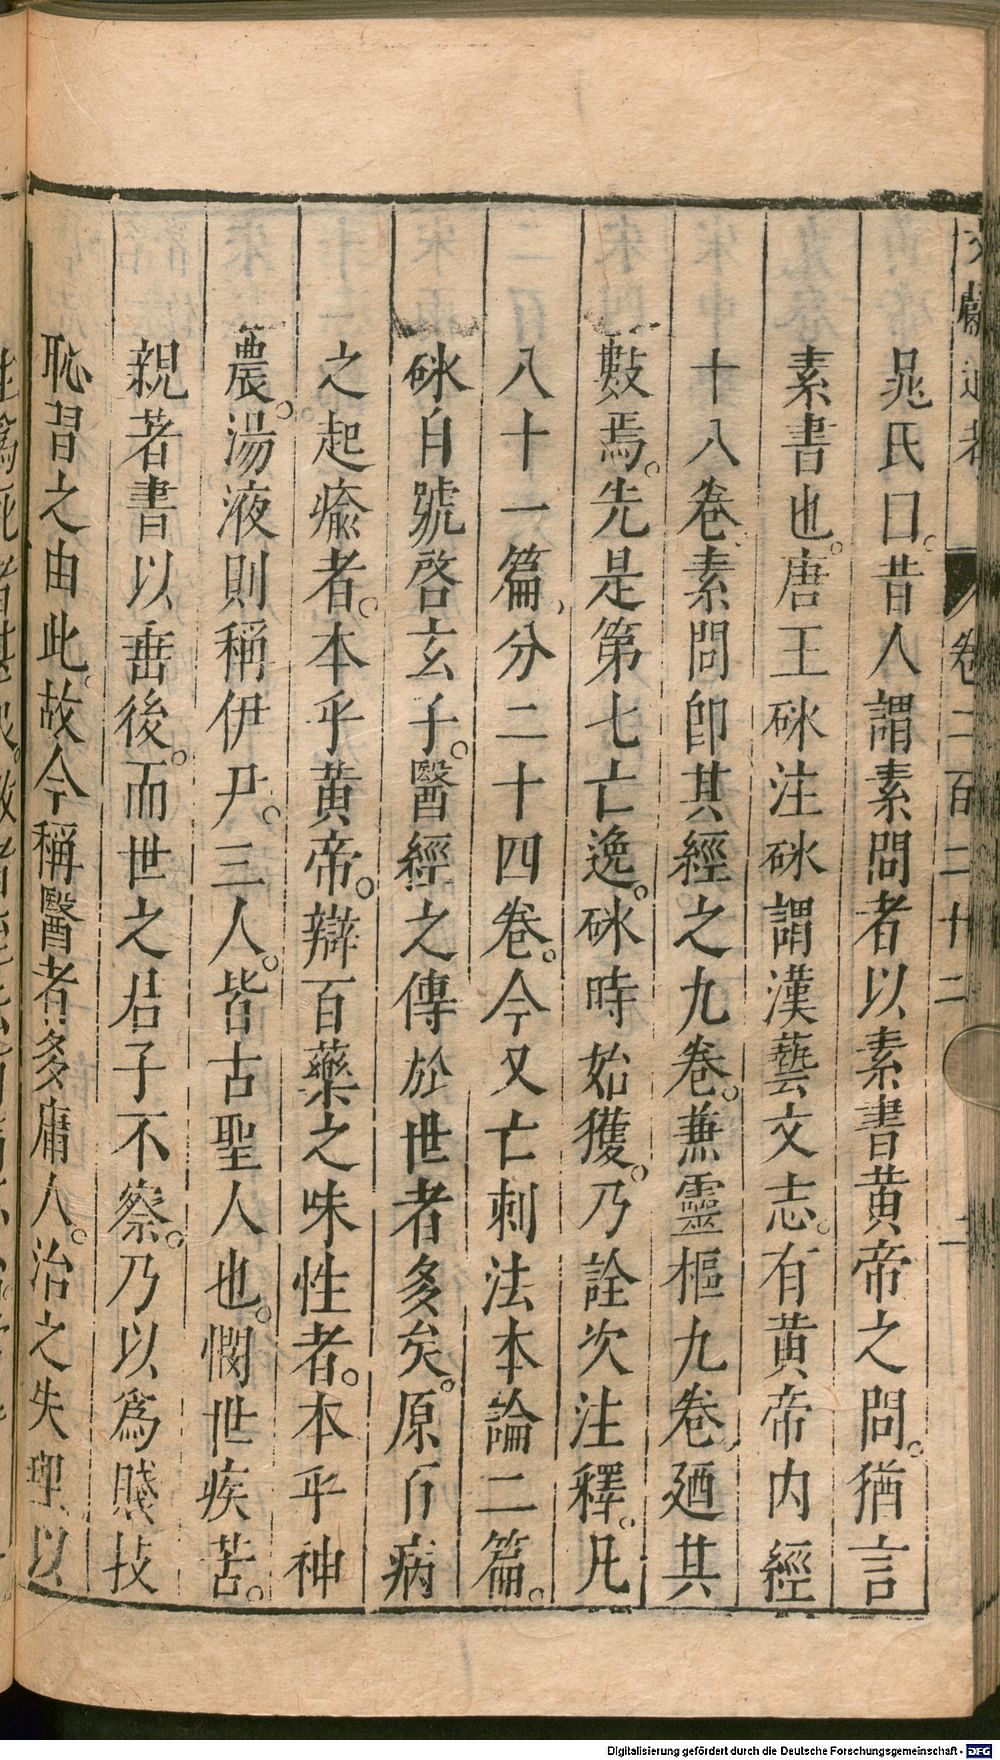 文獻通考 卷二百二十二 二
晁氏曰。昔人謂素問者以素書黃帝之問。猶言
素書也。唐王砯注砯謂漢藝文志。有黃帝内經
十八卷、素問卽其經之九卷。兼靈樞九卷、廼其
數焉。先是第七亡逸。砯時始獲。乃詮次注釋。凡
八十一篇、分二十四卷。今又亡刺法本論二篇。
砯自號啓玄子。醫經之傳於世者多矣。原百病
之起瘉者。本乎黃帝。辯百藥之味性者。本乎神
農。湯液則稱伊尹。三人。皆古聖人也。憫世疾苦。
親著書以垂後。而世之君子不察。乃以爲賤技
恥習之由此。故今稱醫者多庸人。治之失理以